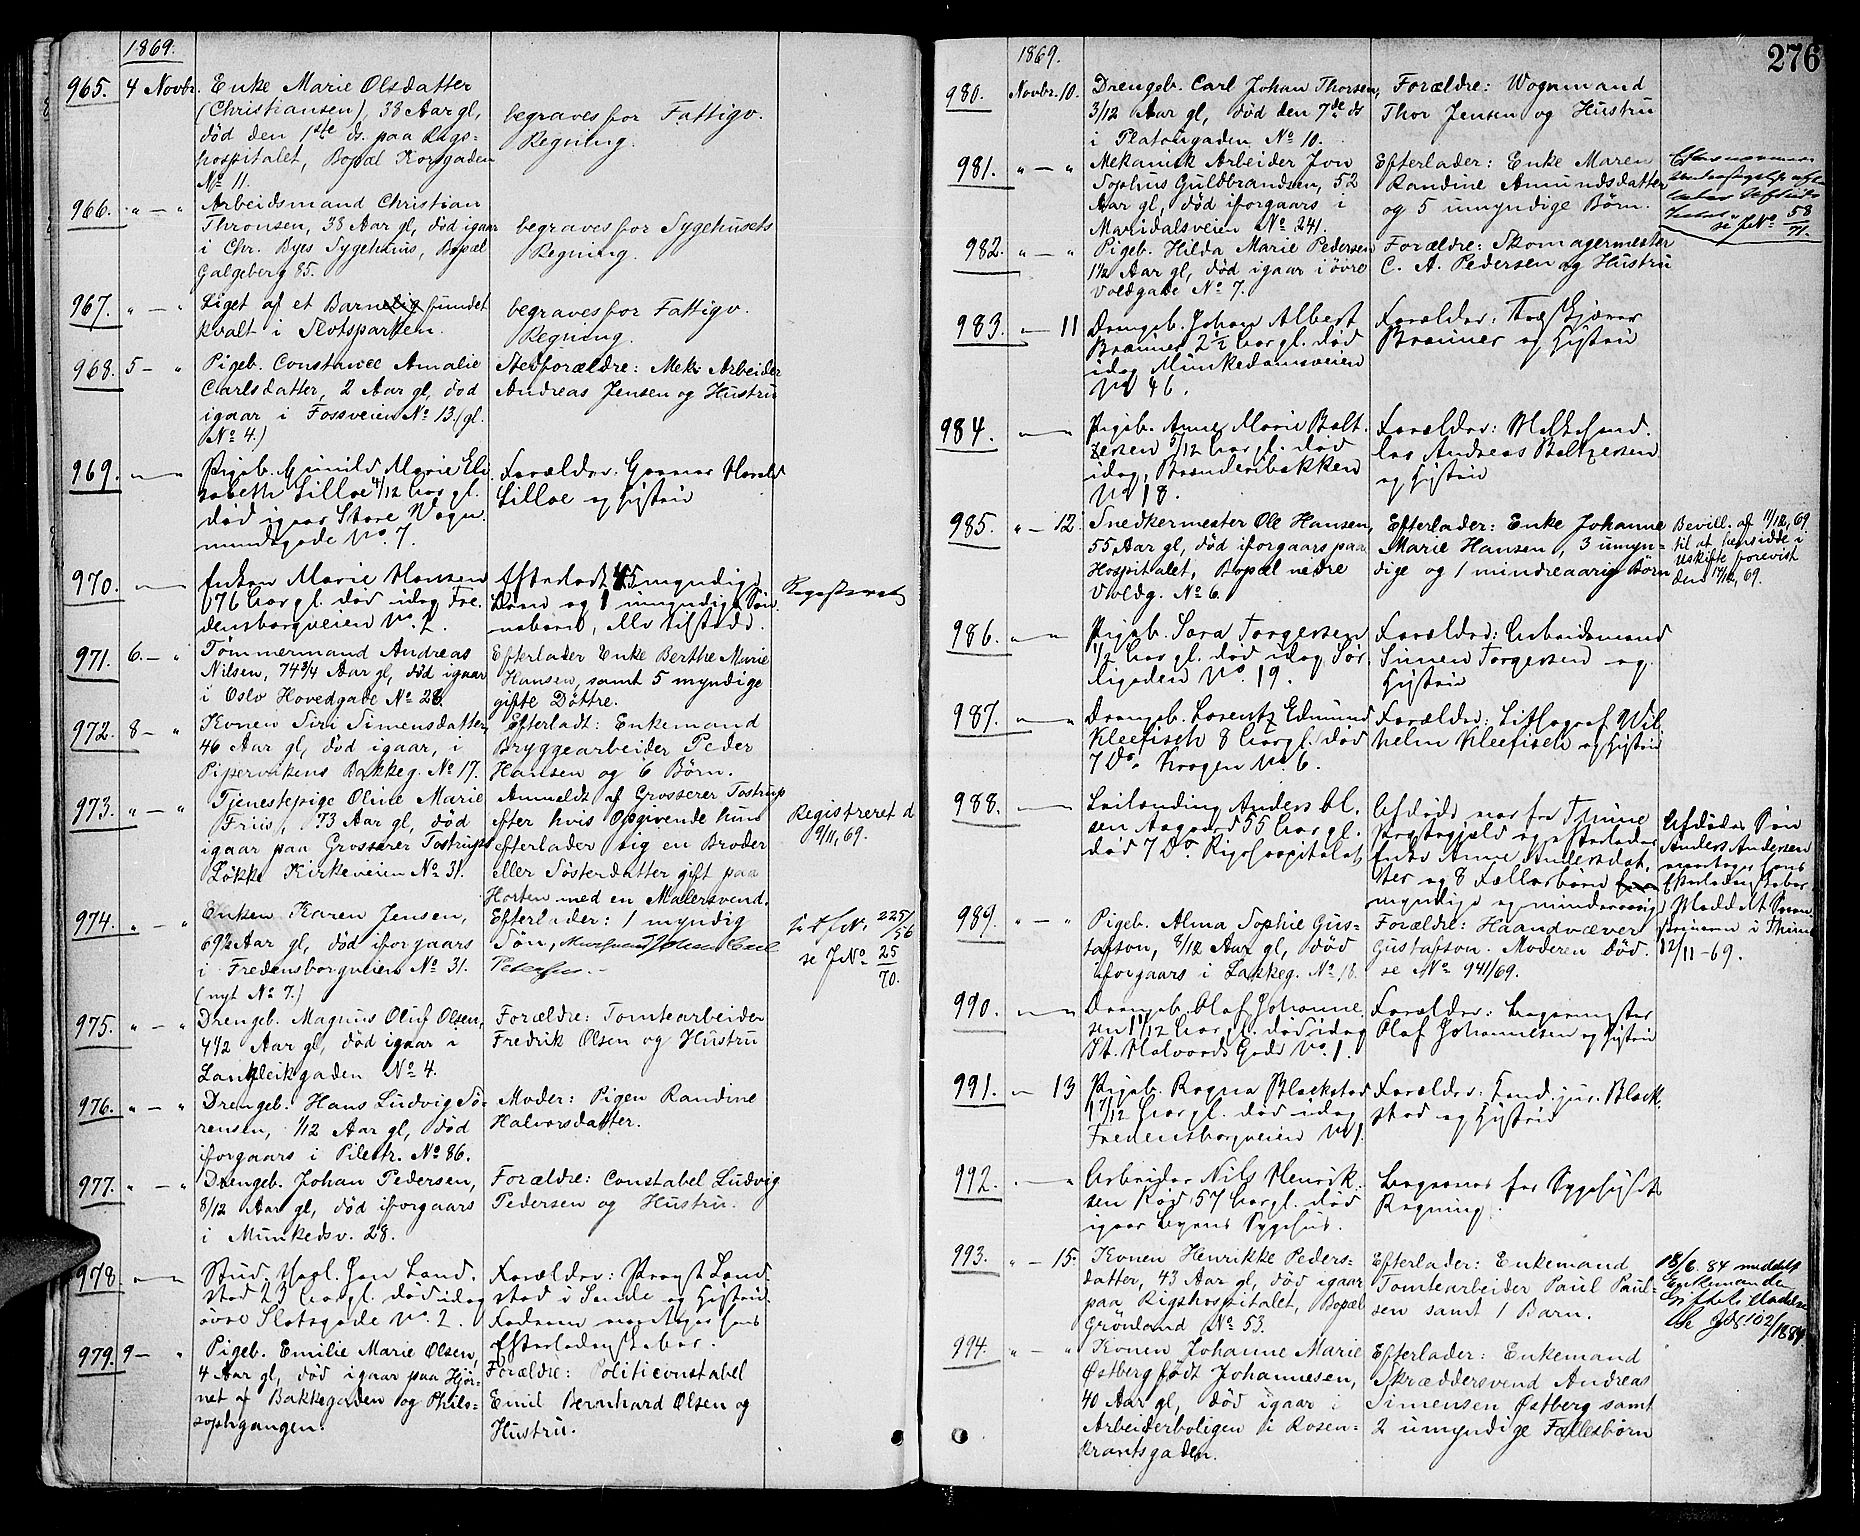 1869.
965. 4 Novbr. Enke Marie Olsdatter
(Christiansen), 38 Aar gl,
død den 1ste ds. paa Rigs-
hospitalet, Bopæl Korsgaden
No 11.
begraves for Fattigv.
Regning.
966. " — " Arbeidsmand Christian
Thronsen, 38 Aar gl, død igaar
i Chr. Byes Sygehuus, Bopæl
Galgeberg 85.
begraves for Sygehusets
Regning.
967. " — " Liget af et Barn fundet
kvalt i Slotsparken.
begraves for Fattigv.
Regning.
968. 5 — " Pigeb. Constance Amalie
Carlsdatter, 2 Aar gl, død
igaar i Fossveien No 13 (gl.
No 4.)
Stedforældre: Mek. Arbeider
Andreas Jensen og Hustru
969. — Pigeb. Gunild Marie Eli
sabeth Lilloe 4/12 Aar gl.
død igaar Store Vogn
mandsgade No. 7.
Forældre: Gunnar Harald
Lilloe og Hustru
970. — Enken Marie Hansen
76 Aar gl. død idag Fre-
densborgveien No. 2.
Efterladt 5 myndige
Børn og 1 umyndigt Søn
nebarn, alle tilstede.
Registreret
971. 6. — " Tømmermand Andreas
Nilsen, 74 3/4 Aar gl, død igaar
i Oslo Hovedgade No 28.
Efterlader Enke Berthe Marie
Hansen, samt 5 myndige
gifte Døttre.
972. 8 — " Konen Siri Simensdatter,
46 Aar gl, død igaar, i
Pipervikens Bakkeg. No 17.
Efterladt: Enkemand
Bryggearbeider Peder
Hansen og 6 Børn.
973. " — " Tjenestepige Oline Marie
Friis, 73 Aar gl, død
igaar paa Grosserer Tostrups
Løkke Kirkeveien No 31.
Anmeldt af Grosserer Tostrup
efter hvis Opgivende hun
efterlader sig en Broder
eller Søsterdatter gift paa
Horten med en Malersvend.
Registreret d
9/11, 69.
974. " — " Enken Karen Jensen,
69 1/2 Aar gl, død iforgaars
i Fredensborgveien No 31.
(nyt No 7.)
Efterlader: 1 myndig
Søn,
Petersen. —
225/56
se J No 25
70.
975. " — " Drengeb. Magnus Oluf Olsen,
4 1/2 Aar gl, død igaar i
Langleikgaden No 4.
Forældre: Tomtearbeider
Fredrik Olsen og Hustru
976. " — " Drengeb. Hans Ludvig Sø-
rensen, 1/12 Aar gl, død
iforgaars i Pilestr. No 86.
Moder: Pigen Randine
Halvorsdatter.
977. " — " Drengeb. Johan Pedersen,
8/12 Aar gl, død iforgaars
i Munkedsv. 28.
Forældre: Constabel Ludvig
Pedersen og Hustru.
978. — Stud. Jan Land-
stad 23 Aar gl. død idag
øvre Slotsgade No. 2.
Forældre: Provst Land-
stad i Sande og Hustru.
Faderen modtager hans
Efterladenskaber.
979. 9 — " Pigeb. Emilie Marie Olsen,
4 Aar gl, død igaar paa Hjør-
net af Bakkegaden og Philo-
sophgangen.
Forældre: Politiconstabel
Emil Bernhard Olsen og
Hustru.
276
1869.
980. Novbr. 10. Drengeb. Carl Johan Thorsen,
3/12 Aar gl, død den 7de ds
i Platousgaden No 10.
Forældre: Vognmand
Thor Jensen og Hustru
981. " — " Mekanisk Arbeider Jon
Sophus Guldbrandsen, 52
Aar gl, død iforgaars i
Maridalsveien No 241.
Efterlader: Enke Maren
Randine Amundsdatter
og 5 umyndige Børn.
se J No 58
71.
982. " — " Pigeb. Hilda Marie Pedersen
1 1/2 Aar gl, død igaar i øvre
Voldgade No 7.
Forældre: Skomagermester
C. A. Pedersen og Hustru
983. — 11 Drengeb. Johan Albert
Brauner 2 1/2 Aar gl. død
idag Munkedamsveien
No 46.
Forældre:
Brauner og Hustru
984. — Pigeb. Anne Marie Balt-
zersen 5/12 Aar gl. død
idag, Brænderibakken
No 18.
Forældre: Melkehand-
ler Andreas Baltzersen
og Hustru
985. " — 12 Snedkermester Ole Hansen,
55 Aar gl, død iforgaars paa
Hospitalet, Bopæl nedre
Voldg. No 6.
Efterlader: Enke Johanne
Marie Hansen, 3 umyn-
dige og 1 mindreaarig Børn
Bevill. af 11/12, 69
til at hensidde i
uskifte forevist
den 17/12, 69.
986. — Pigeb. Sara Torgersen
1/2 Aar gl. død idag Sør-
ligaden No. 19.
Forældre: Arbeidsmand
Simen Torgersen og
Hustru
987. — Drengeb. Lorentz Edmund
Kleefisch 8 Aar gl. død
7 Do. Krogen No. 6.
Forældre: Lithograf Wil-
helm Kleefisch og Hustru
988. — Leilending Anders Ol-
sen Aagaard 55 Aar gl.
død 7 Do. Rigshospitalet
Afdøde var fra Thime
Præstegjeld og efterlader
Enke Anne Andersdat-
ter og 8 Fællesbørn
myndige og mindreaarige
Afdødes Søn
Anders Andersen
modtager hans
Efterladenskaber
Meddelt
i Thime
12/11 — 69.
989. " — " Pigeb. Alma Sophie Gus-
tafson, 8/12 Aar gl, død
iforgaars i Lakkeg. No 18.
Forældre: Haandvæver
Gustafson. Moderen død.
se No 941/69.
990. — Drengeb. Olaf Johanne-
sen 1 11/12 Aar gl. død idag
St. Halvards Gade No. 1.
Forældre: Bagermester
Olaf Johannesen og Hustru
991. — 13 Pigeb. Ragna Blackstad
1 7/12 Aar gl. død idag
Fredensborgveien No 1.
Forældre: Cand. jur. Black-
stad og Hustru
992. — " Arbeider Nils Henrik-
sen Rød 57 Aar gl. død
igaar Byens Sygehus.
Begraves for Sygehusets
Regning.
993. " — 15. Konen Henrikke Peders-
datter, 43 Aar gl, død igaar
paa Rigshospitalet, Bopæl
Grønland No 53.
Efterlader: Enkemand
Tomtearbeider Paul Paul-
sen samt 1 Barn.
18/6. 84 meddelt
Enkemanden
Skifteri
102/1884
994. " — " Konen Johanne Marie
Østberg født Johannesen,
40 Aar gl, død igaar i
Arbeiderboligen i Rosen-
krantsgaden.
Efterlader: Enkemand
Skræddersvend Andreas
Simensen Østberg samt
2 umyndige Fællesbørn